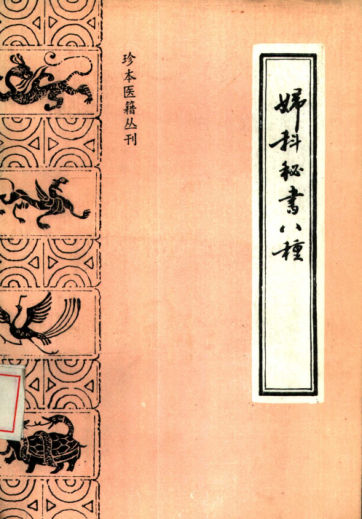 珍本医籍丛刊
婦科秘書八種